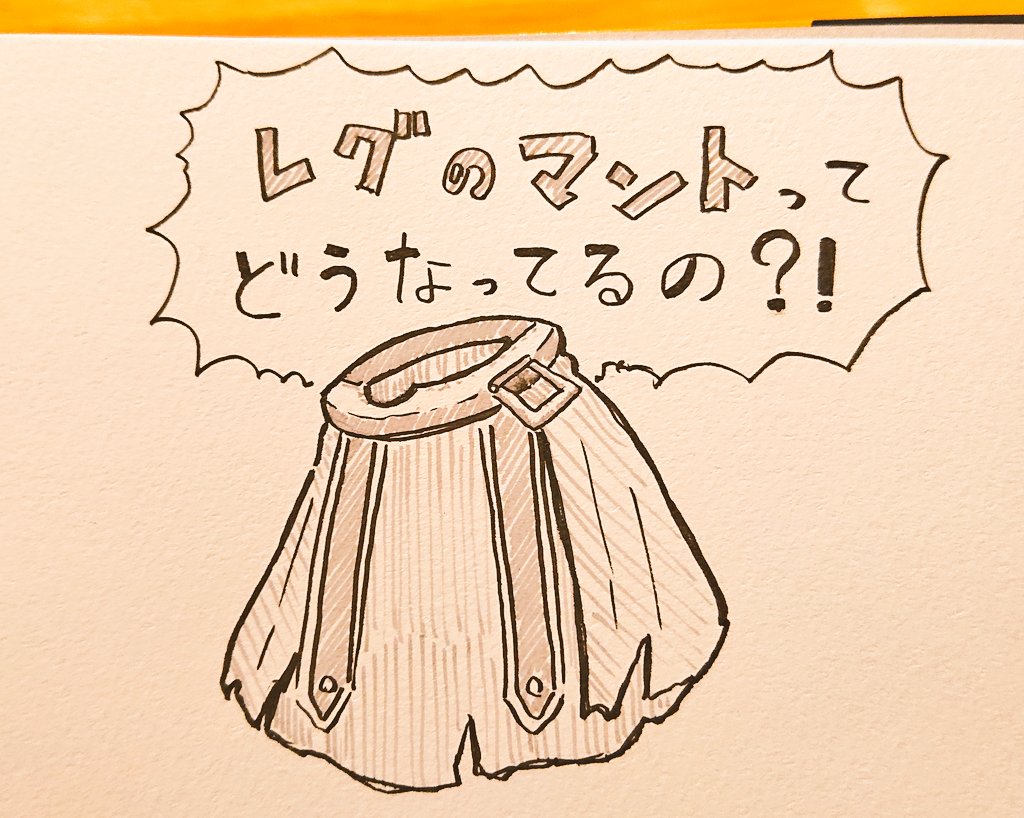 レグのマントって
どうなってるの?!